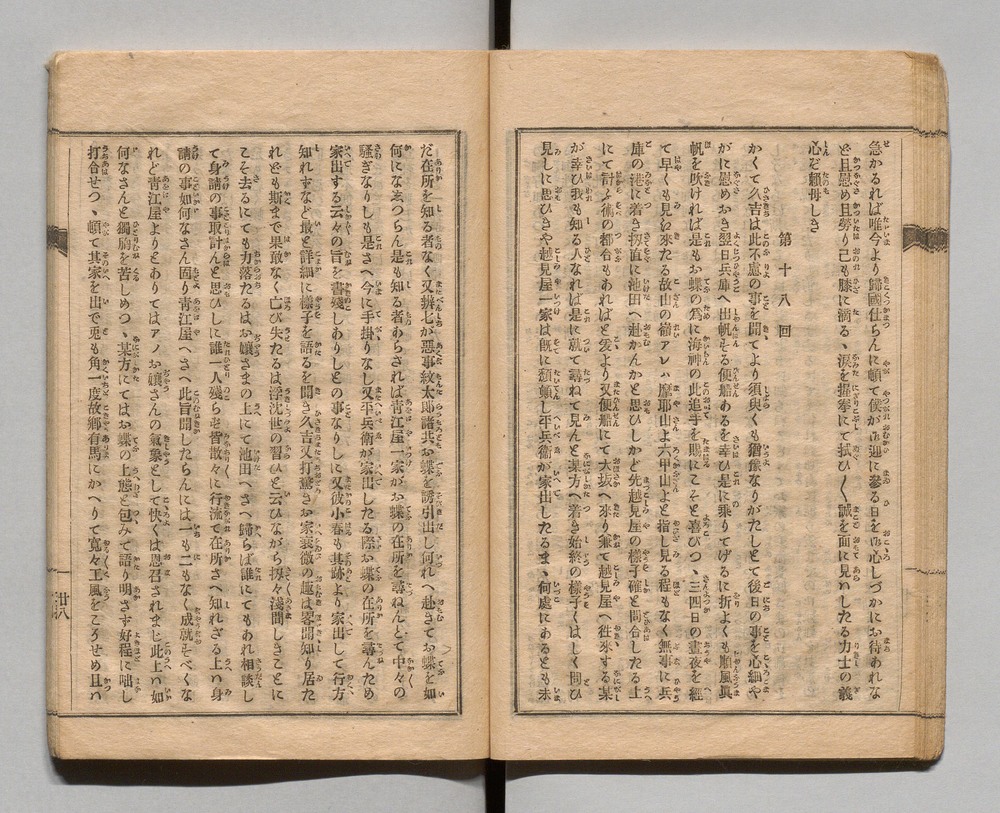 急かるれば唯今より歸國仕らんに頓て僕がお迎に參る日をお心しづかにお待あれな
ど且慰め且勞り己も膝に滴るゝ涙を握拳にて拭ひ〳〵誠を面に見いしたる力士の義
心ぞ頼母しき
第十八回
かくて久吉は此不意の事を聞てより須臾くも猶豫なりがたしとて後日の事を心細や
かに慰めおき翌日兵庫へ出帆せる便船あるを幸ひ是に乘りてげるに折よくも順風眞
帆を吹ければ是もお蝶の爲に海神の此追手を賜にこそと喜びつゝ三四日の晝夜を經
て早くも見え來たる故山の嶺アレハ摩耶山よ六甲山よと指し見る程もなく無事に兵
庫の港に着き扨直に池田へ赴かんかと思ひしかど先越見屋の樣子確と問合したる上
にて計ふ術の都合もあればと爰より又便船にて大坂へ來り兼て越見屋へ徃來する某
が幸ひ我も知る人なれば是に就て尋ねて見んと某方へ着き始終の樣子くはしく問ひ
見しに思ひきや越見屋一家は既に頽顛し平兵衛が家出したるまゝ何處にあるとも未
だ在所を知る者なく又辨七が惡事紋太郎諸共お蝶を誘引出し何れへ赴きてお蝶を如
何になゑつらん是も知る者あらされば青江屋一家がお蝶の在所を尋ねんとて中々の
騷ぎなりしも是さへ今に手掛りなし又平兵衛が家出したる際お蝶の在所を尋んため
家出する云々の旨を書殘しありしとの事なりしに又彼小春も其跡より家出して行方
知れずなど最と詳細に樣子を語るを聞き久吉又打驚きお家衰微の趣は畧聞知り居た
れども斯まで果敢なく亡び失たるは浮沈世の習ひと云ひながら扨々淺間しきことに
こそ去るにても力落たるはお孃さまの上にて池田へさへ歸らば誰にてもあれ相談し
て身請の事取計んと思ひしに誰一人殘らせ皆散々に行流て在所さへ知れざる上ハ身
請の事如何なさん固り青江屋へさへ此旨聞したらんには一も二もなく成就そべくな
れど青江屋よりとありてはアノお孃さんの氣象として快くは思召されまじ此上ハ如
何なさんと獨胸を苦しめつゝ某方にてはお蝶の上態と包みて語り明さず好程に咄し
打合せつゝ頓て其家を出で兎も角一度故郷有馬にかへりて寛々工風をこらせめ且ハ
廿八